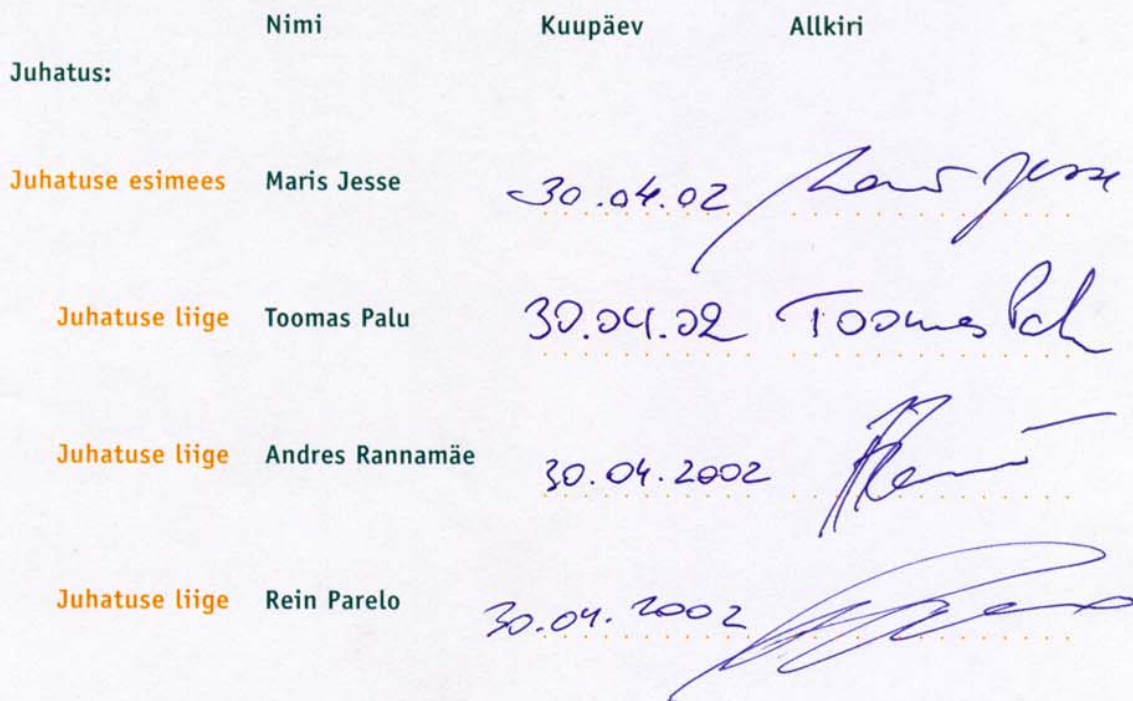 Nimi Kuupäev Allkiri
Juhatus:
Juhatuse esimees Maris Jesse 30.04.02 Maris Jesse
Juhatuse liige Toomas Palu 30.04.02 Toomas Palu
Juhatuse liige Andres Rannamäe 30.04.2002
Juhatuse liige Rein Parelo 30.04.2002